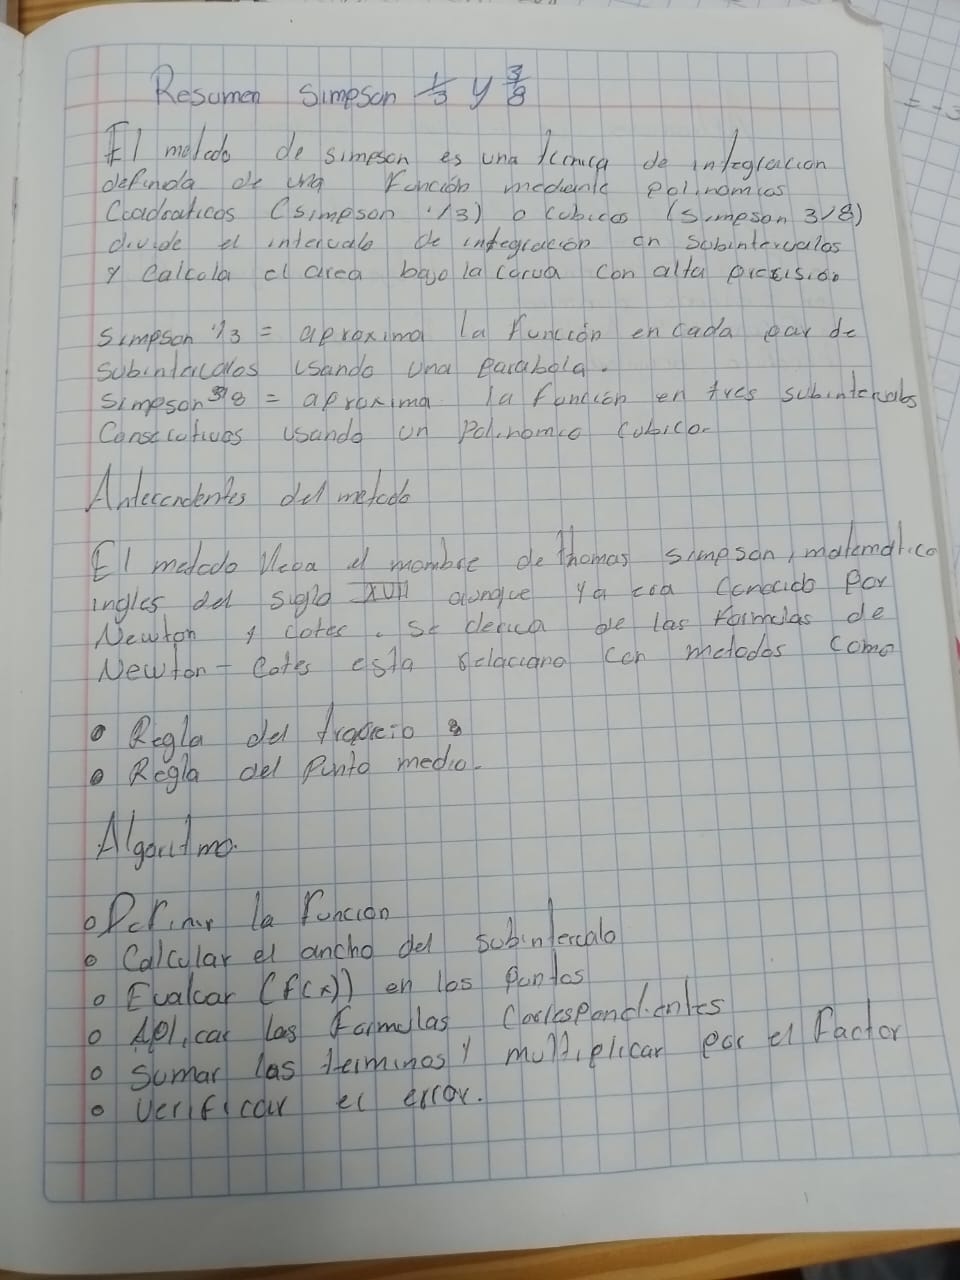 Resumen Simpson 1/3 y 3/8
El metodo de simpson es una tecnica de integracion
definida de una Función mediante Polinomios
Cuadraticos (simpson 1/3) o cubicos (Simpson 3/8)
divide el intervalo de integración en subintervalos
y calcula el area bajo la curva con alta precisión
Simpson 1/3 = aproxima la Función en cada par de
subintervalos usando una Parabola.
Simpson 3/8 = aproxima la función en tres subintervalos
Consecutivos usando un Polinomio cubico.
Antecendentes del metodo
El metodo lleva el nombre de thomas simpson, matematico
ingles del siglo XVIII aunque ya era conocido por
Newton y cotes. Se deriva de las Formulas de
Newton - Cotes esta relaciono con metodos como
• Regla del trapecio
• Regla del Punto medio.
Algoritmo.
• Definir la Funcion
• Calcular el ancho del subintervalo
• Evaluar (f(x)) en los puntos
• Aplicar las Formulas Correspondientes
• Sumar las terminos y multiplicar por el Factor
• Verificar el error.